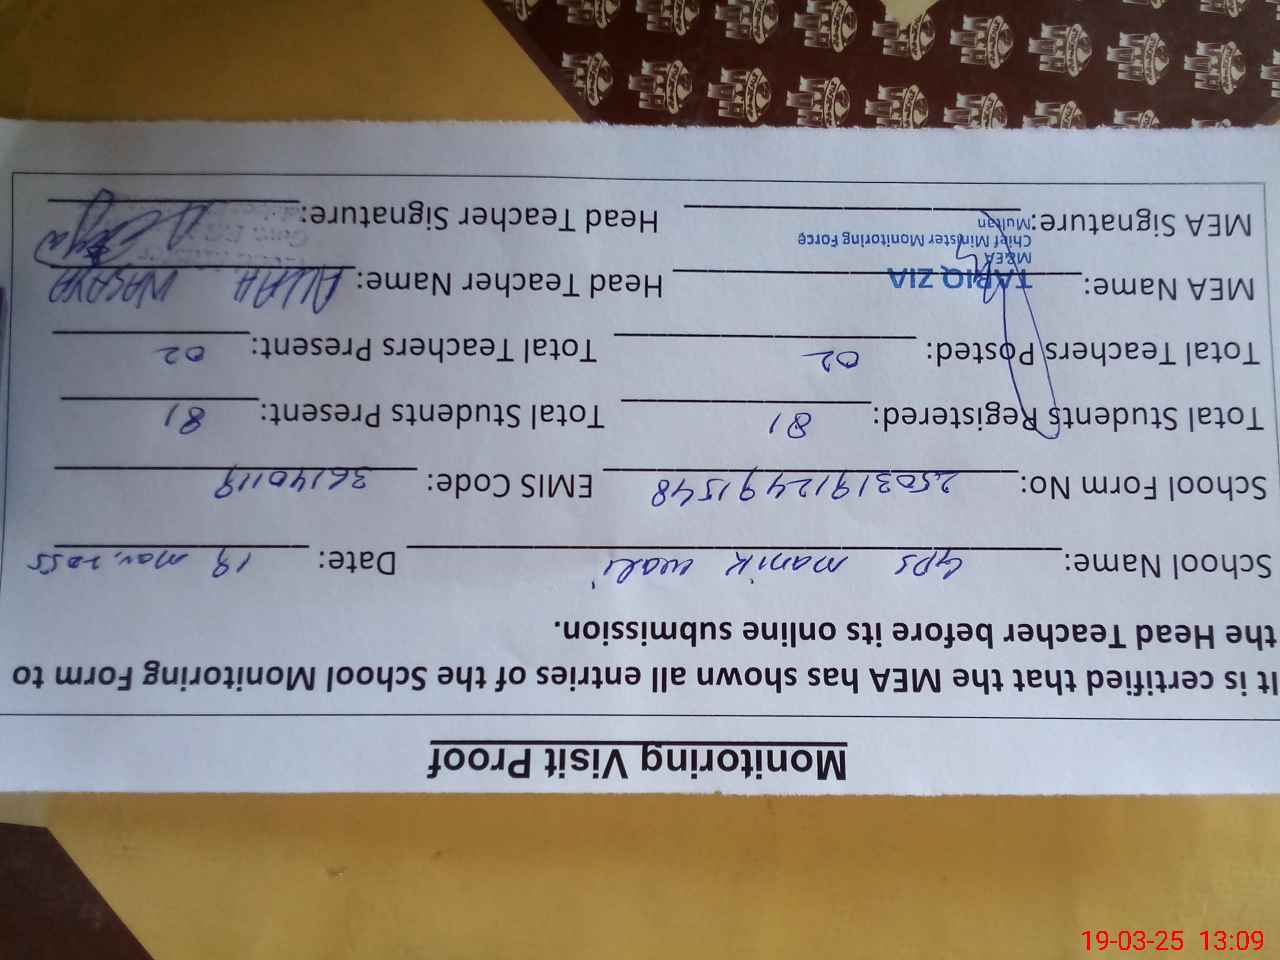 Monitoring Visit Proof
It is certified that the MEA has shown all entries of the School Monitoring Form to
the Head Teacher before its online submission.
School Name: GPS manik wali Date: 19 mar, 2025
School Form No: 2503191249 1548 EMIS Code: 36140119
Total Students Registered: 81 Total Students Present: 81
Total Teachers Posted: 02 Total Teachers Present: 02
MEA Name: TARIQ ZIA Head Teacher Name: ALLAH WASAYA
M&EA
Chief Minister Monitoring Force
Multan
MEA Signature: Head Teacher Signature:
19-03-25 13:09